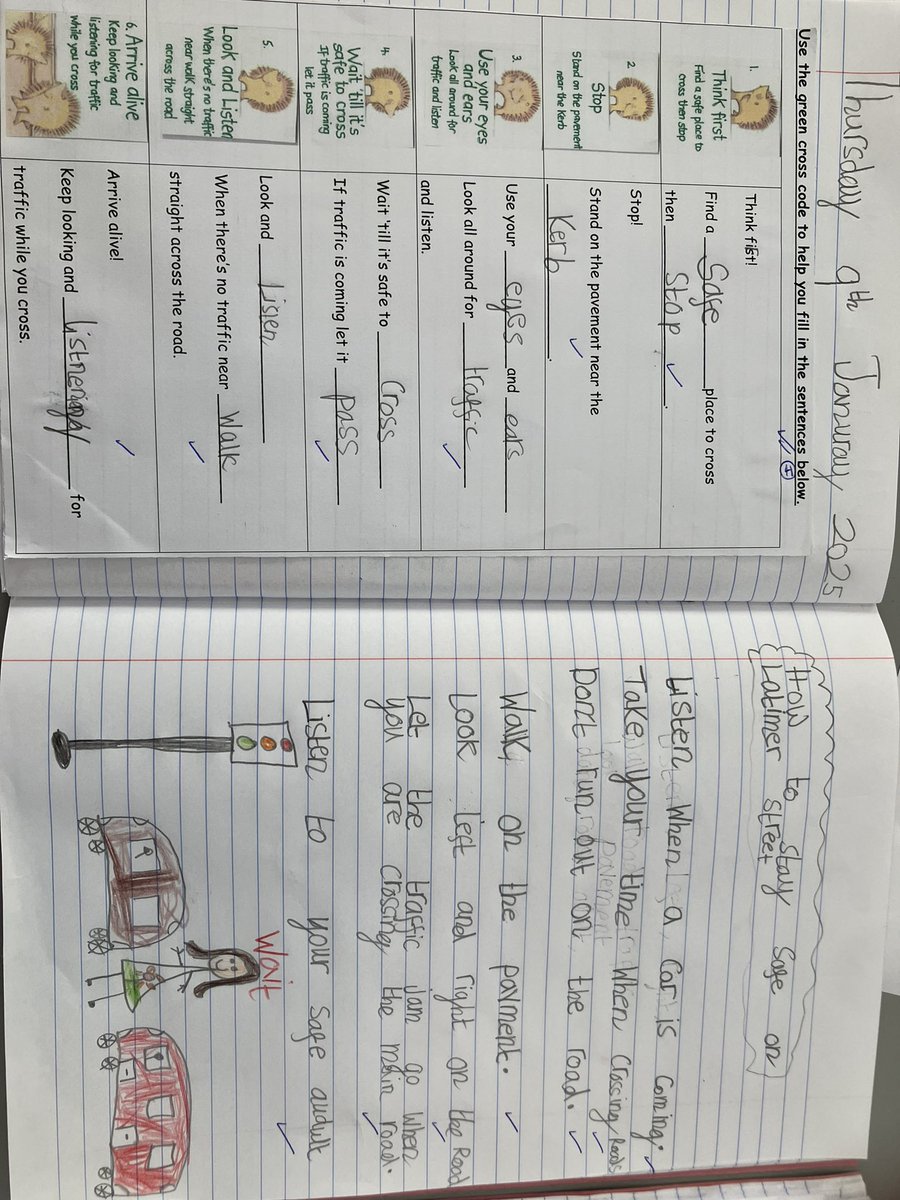 Thursday 9th Januray 2025
Use the green cross code to help you fill in the sentences below.
1.
Think first
Find a safe place to
cross then stop
Think first!
Find a Safe place to cross
then Stop.
2
Stop
Stand on the pavement
near the kerb
Stop!
Stand on the pavement near the
Kerb.
3.
Use your eyes
and ears
Look all around for
traffic and listen
Use your eyes and ears
Look all around for traffic
and listen.
4.
Wait 'till it's
safe to cross
If traffic is coming
let it pass
Wait 'till it's safe to Cross
If traffic is coming let it pass
5.
Look and Listen
When there's no traffic
near walk straight
across the road
Look and Listen
When there's no traffic near Walk
straight across the road.
6. Arrive alive
Keep looking and
listening for traffic
while you cross
Arrive alive!
Keep looking and for
traffic while you cross.
How to stay safe on
Latimer street
Listen When a Car is coming.
Take your time When crossing Roads
Dont run out on the road.
Walk on the pavment.
Look left and right on the Road
Let the traffic jam go when
you are crossing the main road.
Listen to your safe audult
Wait